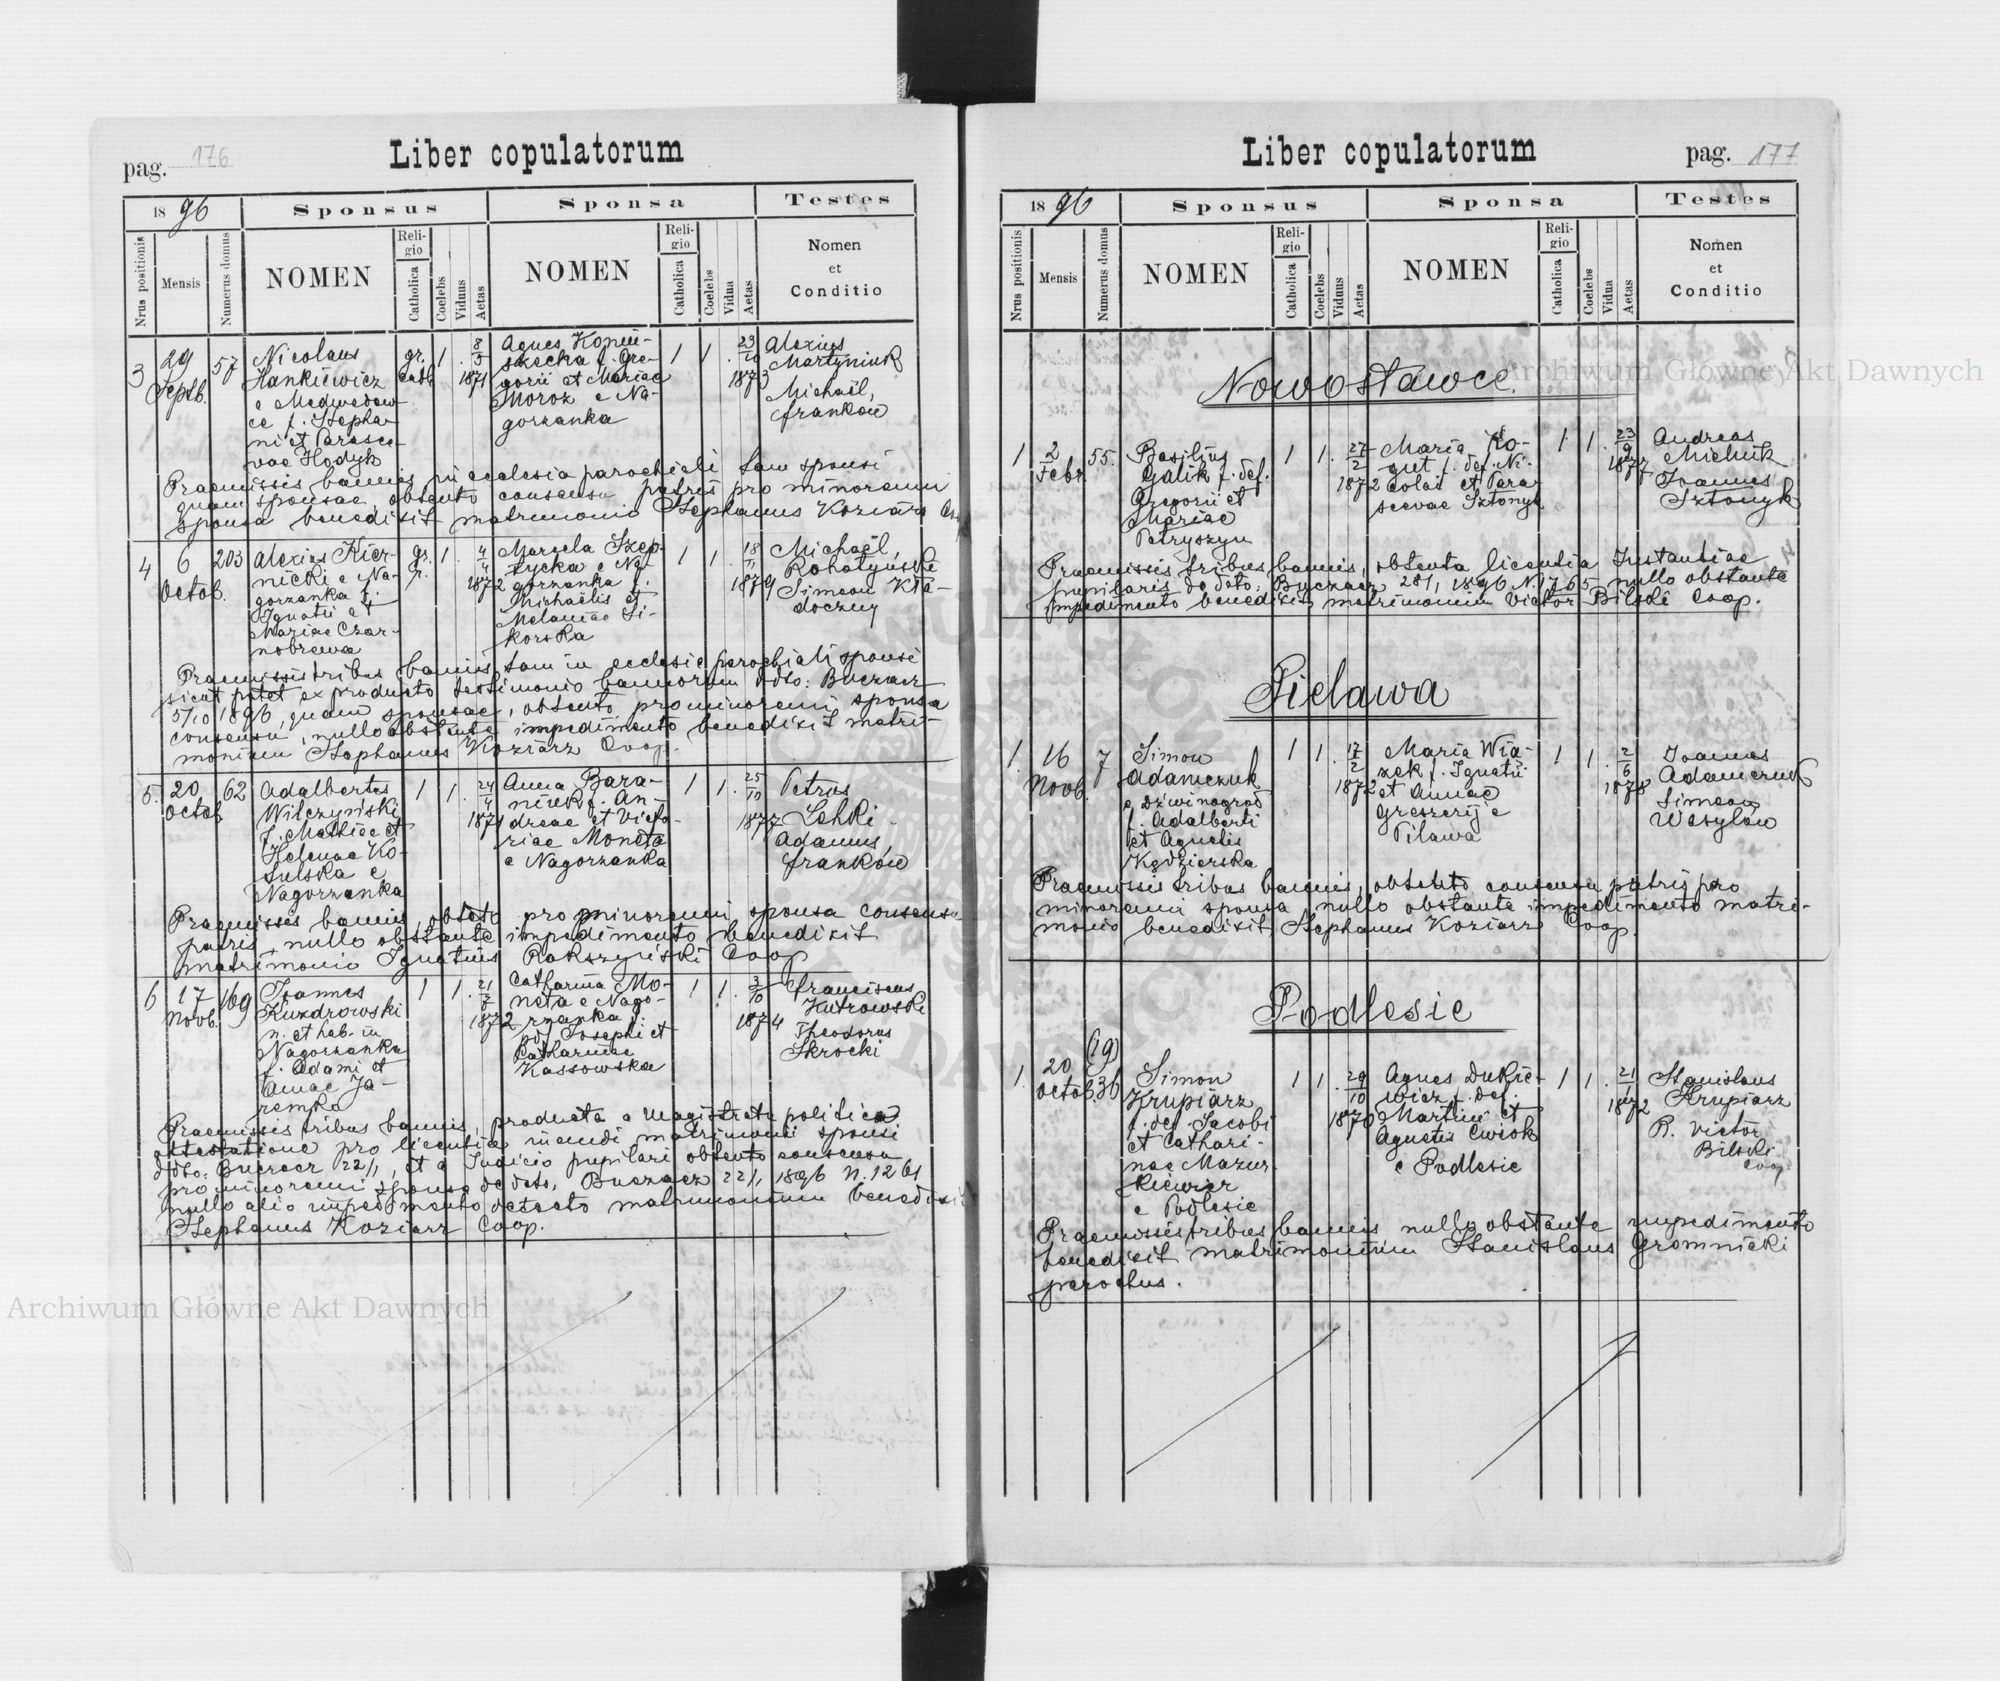 pag. 176
Liber copulatorum
1896
Sponsus
Sponsa
Testes
Nrus positionis
Mensis
Numerus domus
NOMEN
Religio
Catholica
Coelebs
Viduus
Aetas
NOMEN
Religio
Catholica
Coelebs
Vidua
Aetas
Nomen
et
Conditio
3 29 Septb. 57
Nicolaus
Hankiewicz
e Medwedow-
ce f. Stepha-
ni et Parasce-
vae Hodyk
gr. cath. 1 . 8/5 1871
Agnes
f. Gre-
gorii et Mariae
Moroz e Na-
gorzanka
1 1 . 23/10 1873
Alexius
Martyniuk
Michaël,
Franków
Praemissis bannis in ecclesia parochiali tam sponsi
quam sponsae obtento consensu patris pro minorenni
sponsa benedixit matrimonio Stephanus Koziarz
4 6 Octob. 203
Alexius Kier-
nicki e Na-
gorzanka f.
Ignatii et
Mariae Czar-
nobrewa
gr. 1 . 4/4 1872
Marcela Szep-
tycka e Na-
gorzanka f.
Michaëlis et
Melaniae Si-
korska
1 1 . 18/11 1879
Michaël,
Rohatyński
Simeon Kła-
doczny
Praemissis tribus bannis tam in ecclesia parochiali sponsi
sicut patet ex producto testimonio bannorum ddto: Buczacz
5/10 1896, quam sponsae, obtento pro minorenni sponsa
consensu, nullo obstante impedimento benedixit matri-
monium Stephanus Koziarz Coop.
5. 20 Octob. 62
Adalbertus
Wilczyński
f. Mathiae et
Helenae Ko-
sulska e
Nagorzanka
1 1 . 24/4 1871
Anna Bara-
niuk f. An-
dreae et Victo-
riae Moneta
e Nagorzanka
1 1 . 25/10 1877
Petrus
Sehki
Adamus,
Franków
Praemissis bannis, obtento pro minorenni sponsa consensu
patris, nullo obstante impedimento benedixit
matrimonio Ignatius Rokszyński Coop
6 17 Novb. 169
Joannes
Kuzdrowski
n. et hab. in
Nagorzanka
f. Adami et
Annae Ja-
remka
1 1 . 21/7 1872
Catharina Mo-
neta e Nago-
rzanka f.
Josephi et
Catharinae
Kassowska
1 1 . 3/10 1874
Franciscus
Kutrowski
Theodorus
Skrocki
Praemissis tribus bannis, producta a magistratu politica
attestatione pro licentia ineundi matrimonii sponsi
ddto: Buczacz 22/1, et a Judicio pupilari obtento consensu
pro minorenni sponsa de dato, Buczacz 22/1 1896 N. 1261
nullo alio impedimento detecto matrimonium benedixit
Stephanus Koziarz Coop.
Liber copulatorum
pag. 177
1896
Sponsus
Sponsa
Testes
Nrus positionis
Mensis
Numerus domus
NOMEN
Religio
Catholica
Coelebs
Viduus
Aetas
NOMEN
Religio
Catholica
Coelebs
Vidua
Aetas
Nomen
et
Conditio
Nowostawce
1 2 Febr. 55.
Basilius
Galik f. def.
Gregorii et
Mariae
Petryszyn
1 1 . 27/2 1872
Maria Ko-
gut f. def. Ni-
colai et Para-
scevae Sztonyk
1 1 . 23/9 1877
Andreas
Michnik
Joannes
Sztonyk
Praemissis tribus bannis, obtenta licentia Instantiae
pupilaris de dato: Buczacz 28/1, 1896 N 1765 nullo obstante
impedimento benedixit matrimonium Victor Bilski Coop.
Pielawa
1. 16 Novb. 7
Simon
Adamczuk
e Dzwinogrod
f. Adalberti
et Agnetis
Kędzierska
1 1 . 17/2 1872
Maria Wią-
zek f. Ignatii
et Annae
Greszeryj e
Pilawa
1 1 . 2/6 1878
Joannes
Adamczuk
Simeon
Wasylów
Praemissis tribus bannis, obtento consensu patris pro
minorenni sponsa nullo obstante impedimento matri-
monio benedixit Stephanus Koziarz Coop.
Podlesie
1. 20 Octob. (19) 36
Simon
Krupiarz
f. def. Jacobi
et Cathari-
nae Mazur-
kiewicz
e Podlesie
1 1 . 29/10 1870
Agnes Dukie-
wicz f. def.
Martini et
Agnetis Cwiok
e Podlesie
1 1 . 21/1 1872
Stanislaus
Krupiarz
R. Victor
Bilski
Coop
Praemissis tribus bannis nullo obstante impedimento
benedixit matrimonium Stanislaus Gromnicki
parochus.
Archiwum Główne Akt Dawnych
Archiwum Główne Akt Dawnych